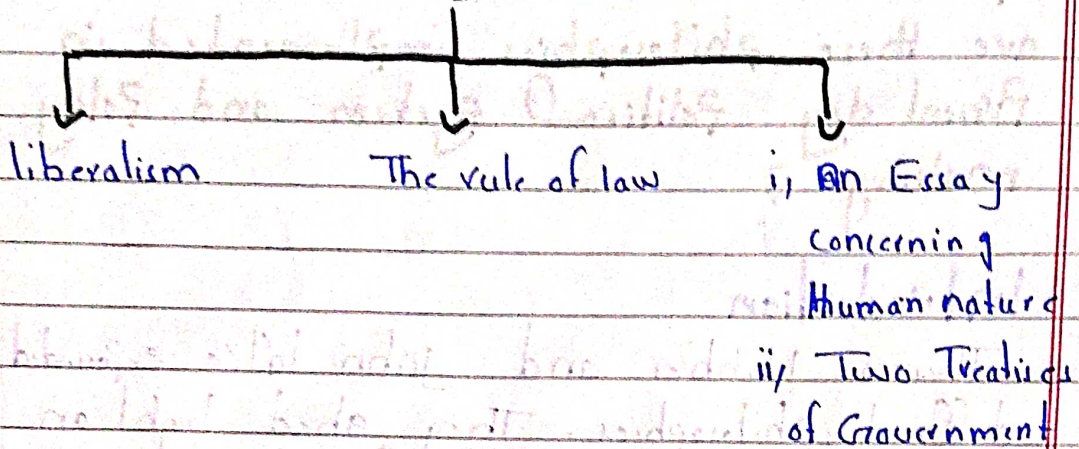 liberalism
The rule of law
i, An Essay
concerning
Human nature
ii, Two Treatises
of Government